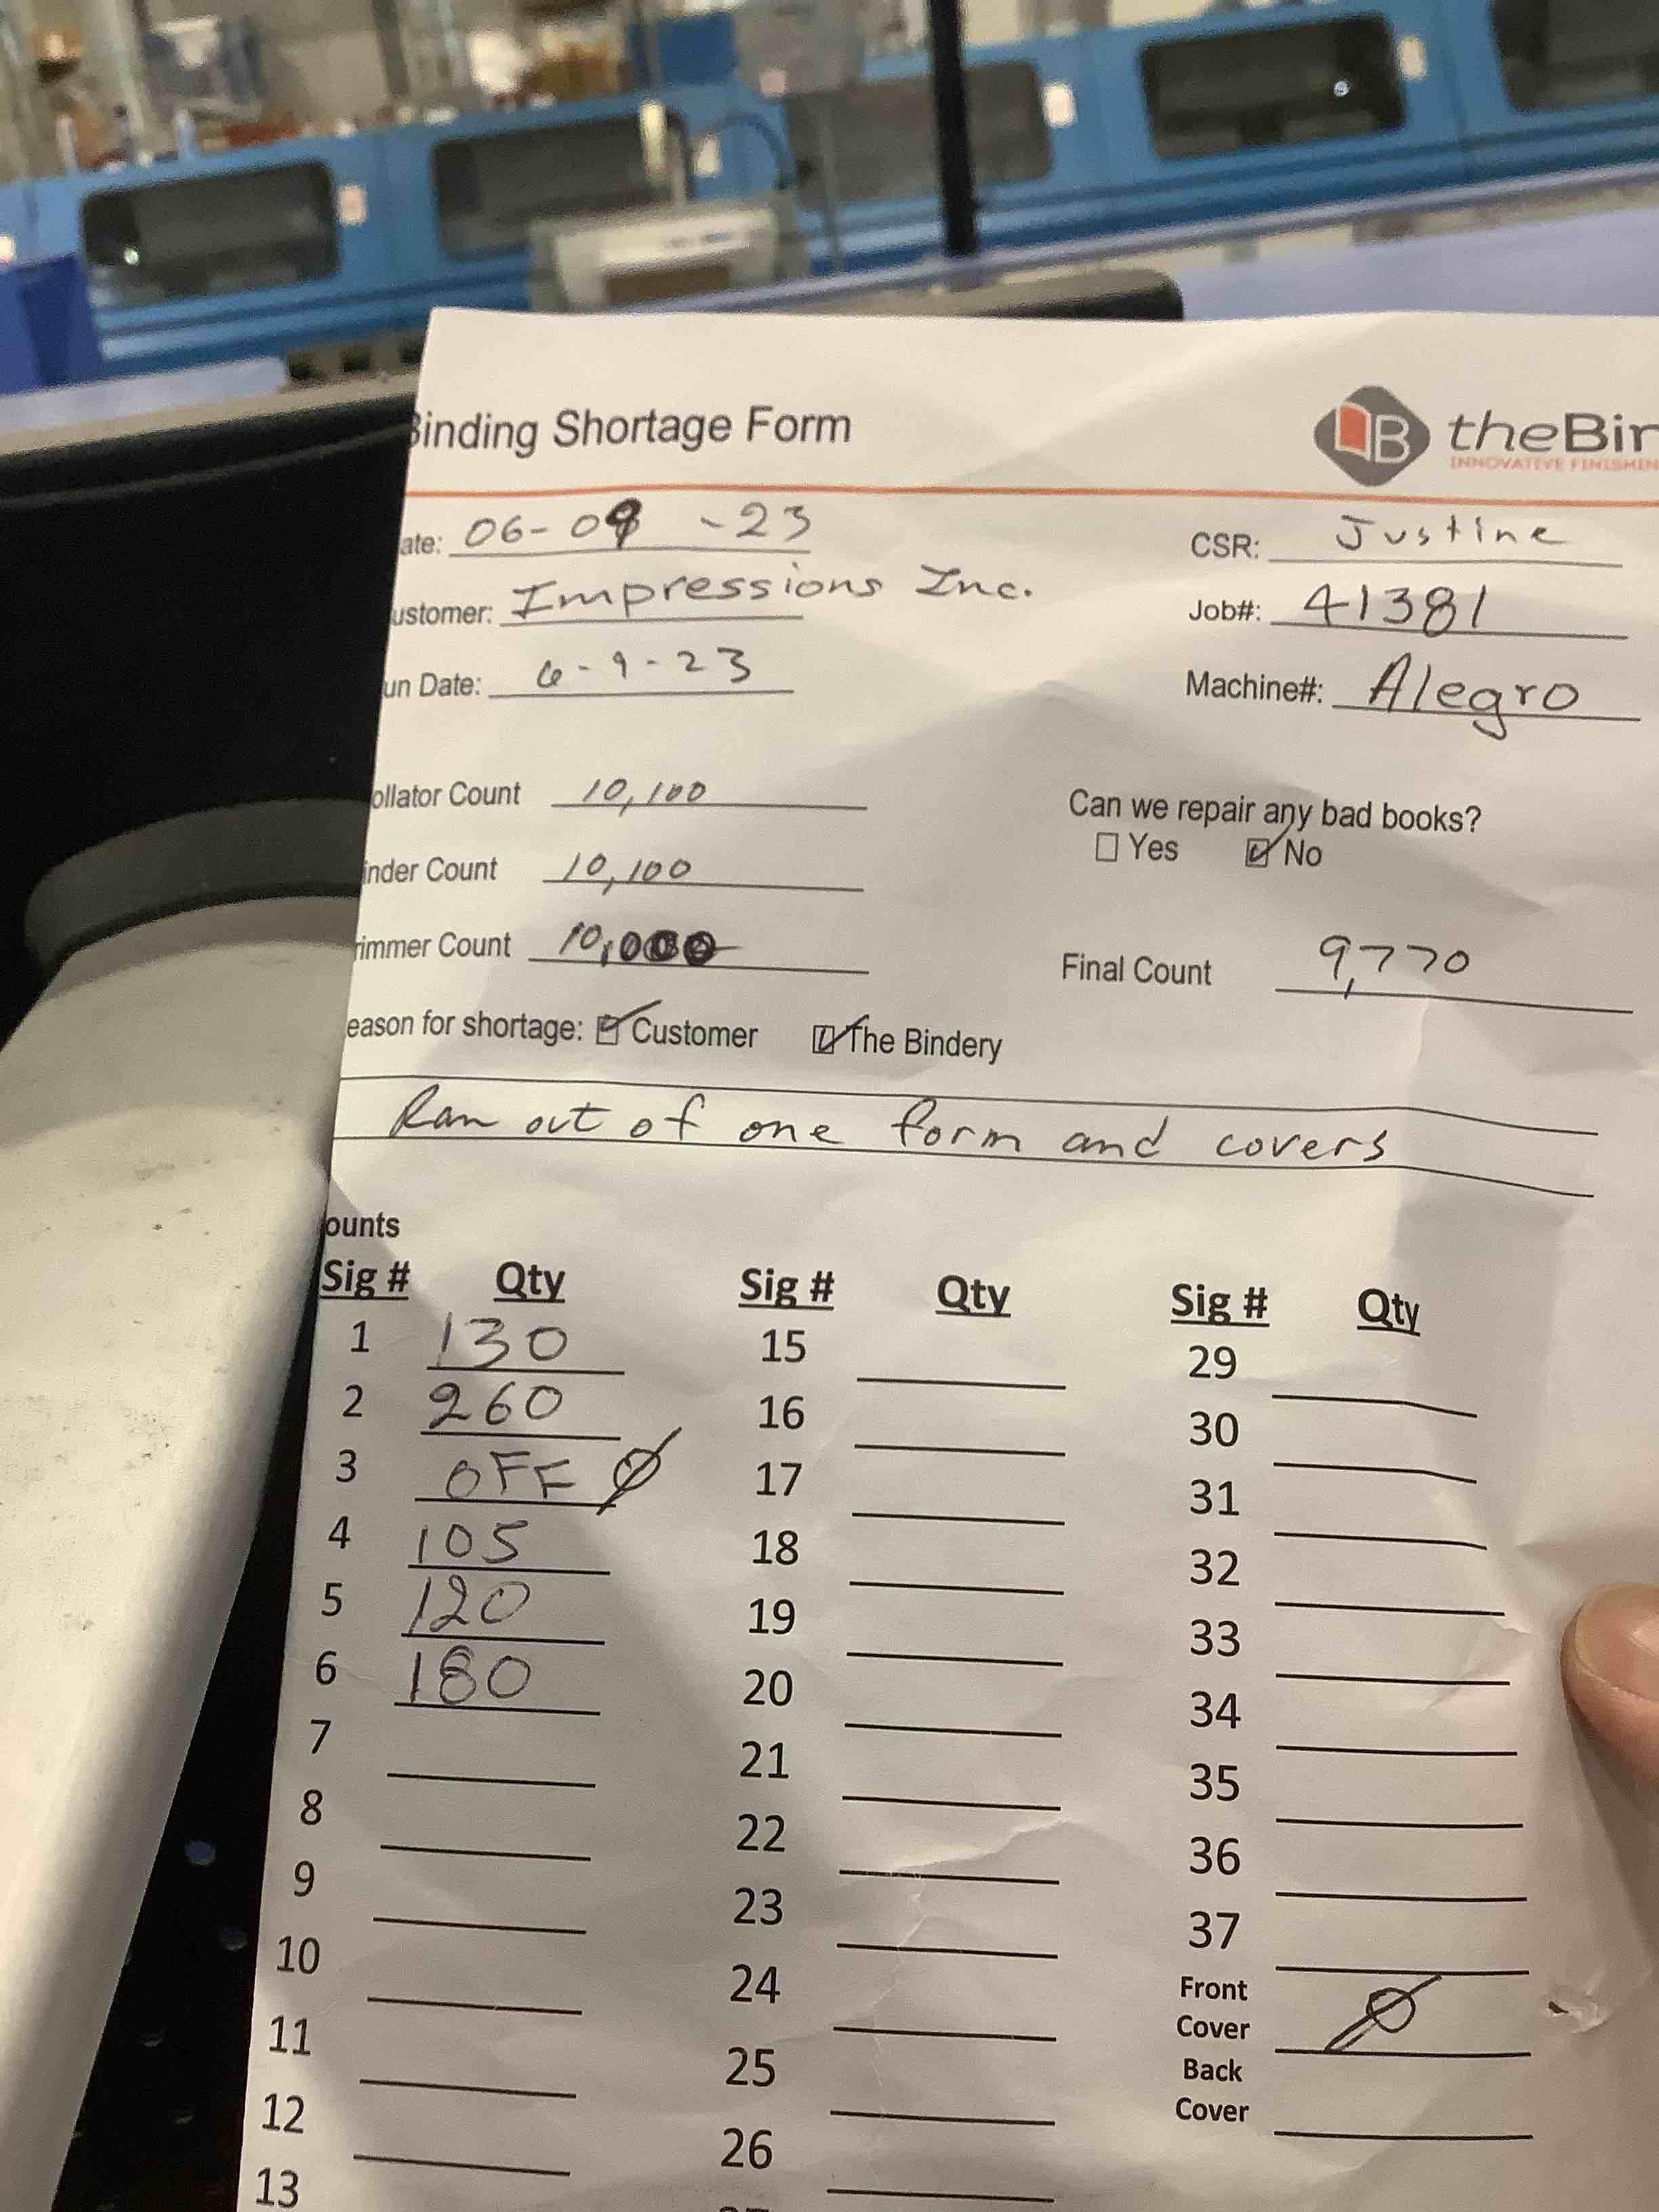 Binding Shortage Form
theBin
INNOVATIVE FINISHIN
ate: 06-09 -23 CSR: Justine
ustomer: Impressions Inc. Job#: 41381
un Date: 6-9-23 Machine#: Alegro
ollator Count 10,100 Can we repair any bad books?
Yes No
inder Count 10,100
rimmer Count 10,000 Final Count 9,770
eason for shortage: Customer The Bindery
Ran out of one form and covers
ounts
Sig # Qty Sig # Qty Sig # Qty
1 130 15 29
2 260 16 30
3 OFF Ø 17 31
4 105 18 32
5 120 19 33
6 180 20 34
7 21 35
8 22 36
9 23 37
10 24 Front Cover Ø
11 25 Back Cover
12 26
13